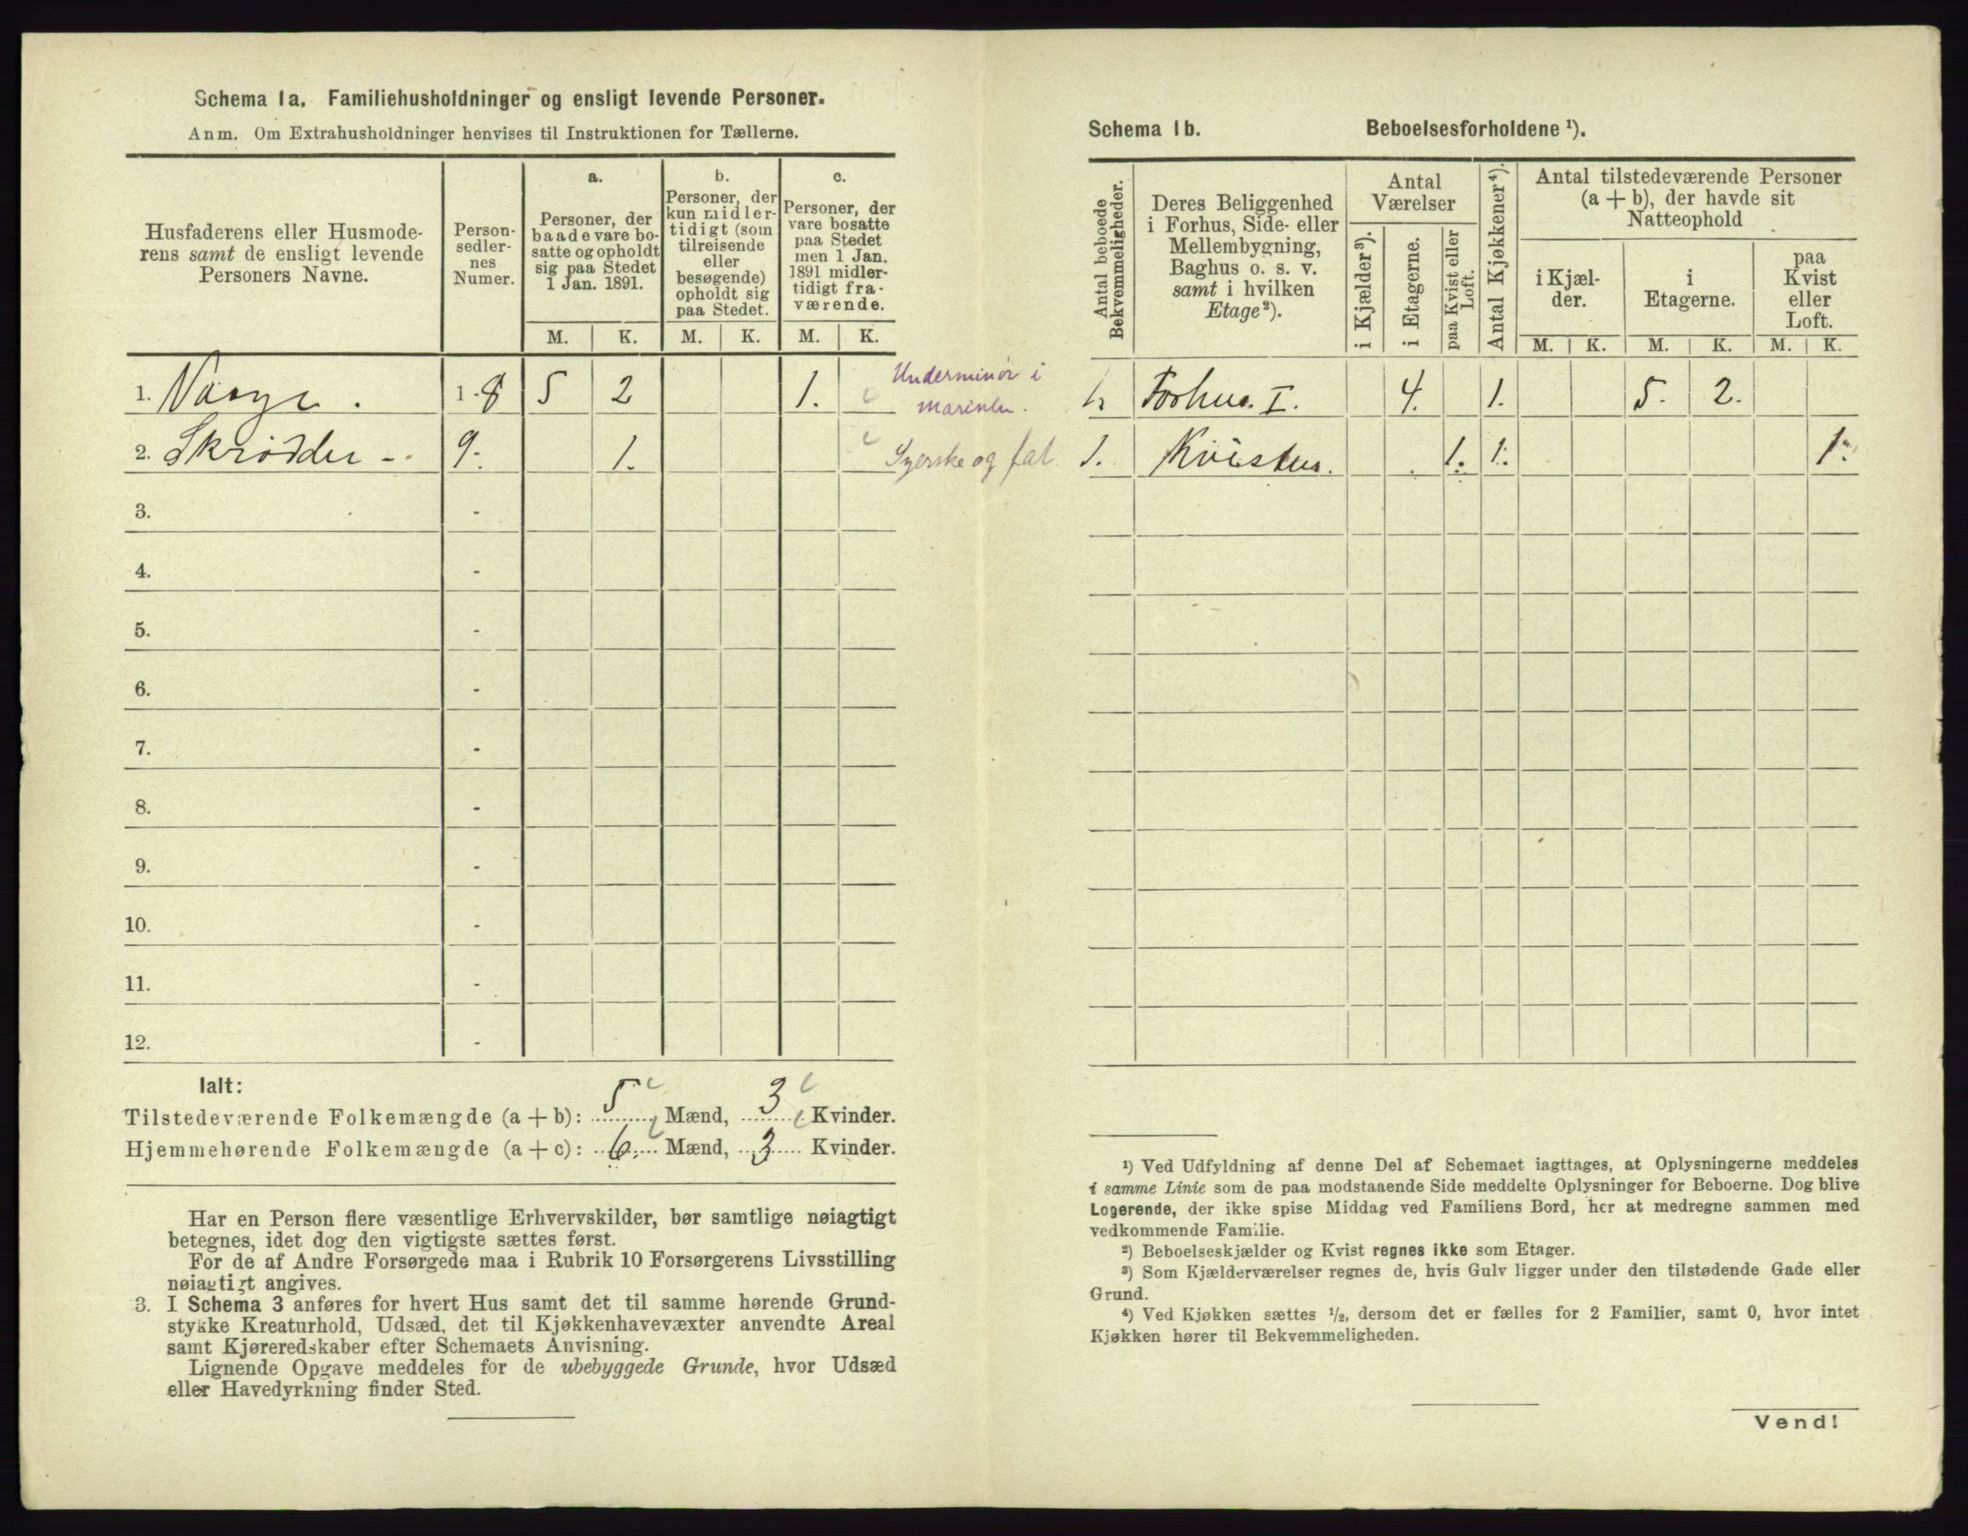 Schema 1a. Familiehusholdninger og ensligt levende Personer.
Anm. Om Extrahusholdninger henvises til Instruktionen for Tællerne.
Husfaderens eller Husmode-
rens samt de ensligt levende
Personers Navne.
Person-
sedler-
nes
Numer.
a.
Personer, der
baade vare bo-
satte og opholdt
sig paa Stedet
1 Jan. 1891.
b.
Personer, der
kun midler-
tidigt (som
tilreisende
eller
besøgende)
opholdt sig
paa Stedet.
c.
Personer, der
vare bosatte
paa Stedet
men 1 Jan.
1891 midler-
tidigt fra-
værende.
M. K. M. K. M. K.
1. 1 - 8 5 2 1. Underminør i
marinen.
2. Skrødder - 9 - 1. Syerske og fat
3. -
4. -
5. -
6. -
7. -
8. -
9. -
10. -
11. -
12. -
Ialt:
Tilstedeværende Folkemængde (a + b): 5 Mænd, 3 Kvinder.
Hjemmehørende Folkemængde (a + c): 6. Mænd, 3 Kvinder.
Har en Person flere væsentlige Erhvervskilder, bør samtlige nøiagtigt
betegnes, idet dog den vigtigste sættes først.
For de af Andre Forsørgede maa i Rubrik 10 Forsørgerens Livsstilling
nøiagtigt angives.
3. I Schema 3 anføres for hvert Hus samt det til samme hørende Grund-
stykke Kreaturhold, Udsæd, det til Kjøkkenhavevæxter anvendte Areal
samt Kjøreredskaber efter Schemaets Anvisning.
Lignende Opgave meddeles for de ubebyggede Grunde, hvor Udsæd
eller Havedyrkning finder Sted.
Schema 1b. Beboelsesforholdene ¹).
Antal beboede
Bekvemmeligheder.
Deres Beliggenhed
i Forhus, Side- eller
Mellembygning,
Baghus o. s. v.
samt i hvilken
Etage²).
Antal
Værelser
i Kjælder³).
i Etagerne.
paa Kvist eller
Loft.
Antal Kjøkkener⁴).
Antal tilstedeværende Personer
(a + b), der havde sit
Natteophold
i Kjæl-
der.
i
Etagerne.
paa
Kvist
eller
Loft.
M. K. M. K. M. K.
1. Forhus. I. 4. 1. 5. 2.
1. Kvisten. 1. 1. 1.
¹) Ved Udfyldning af denne Del af Schemaet iagttages, at Oplysningerne meddeles
i samme Linie som de paa modstaaende Side meddelte Oplysninger for Beboerne. Dog blive
Logerende, der ikke spise Middag ved Familiens Bord, her at medregne sammen med
vedkommende Familie.
²) Beboelseskjælder og Kvist regnes ikke som Etager.
³) Som Kjælderværelser regnes de, hvis Gulv ligger under den tilstødende Gade eller
Grund.
⁴) Ved Kjøkken sættes ½, dersom det er fælles for 2 Familier, samt 0, hvor intet
Kjøkken hører til Bekvemmeligheden.
Vend!